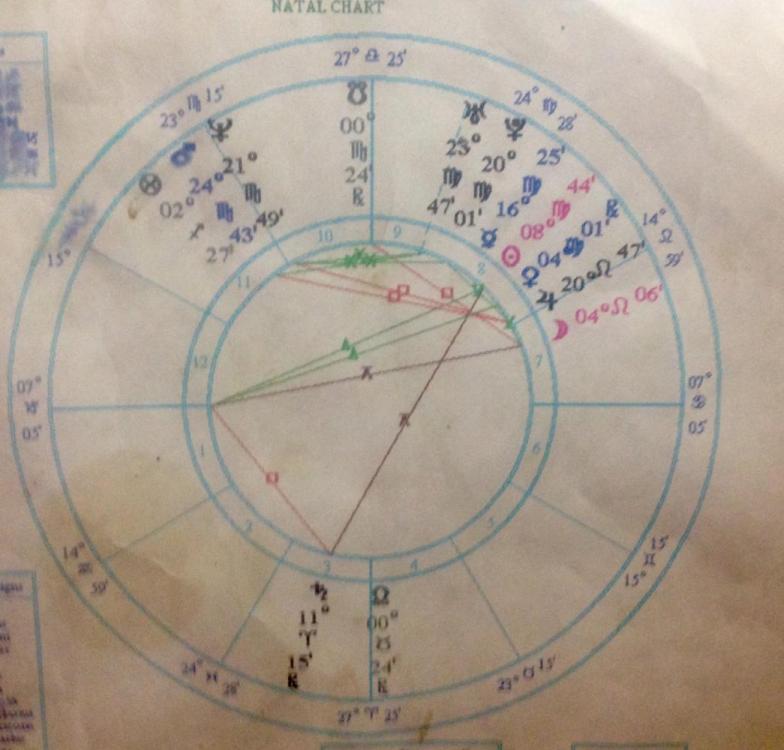 NATAL CHART
27° ♎ 25'
24° ♍ 28'
14° ♌ 59'
07° ♋ 05'
15° ♊ 15'
23° ♉ 15'
27° ♈ 25'
24° ♓ 28'
14° ♒ 59'
07° ♑ 05'
15°
23° ♏ 15'
☋ 00° ♏ 24' ℞
♅ 23° ♍ 47'
♇ 20° ♍ 01'
☿ 16° ♍ 25'
☉ 08° ♍ 44'
♀ 04° ♍ 01' ℞
♃ 20° ♌ 47'
☽ 04° ♌ 06'
☊ 00° ♉ 24' ℞
♄ 11° ♈ 15' ℞
⊗ 02° ♐ 27'
♂ 24° ♏ 43'
♆ 21° ♏ 49'
10
9
8
7
6
5
4
3
2
1
12
11